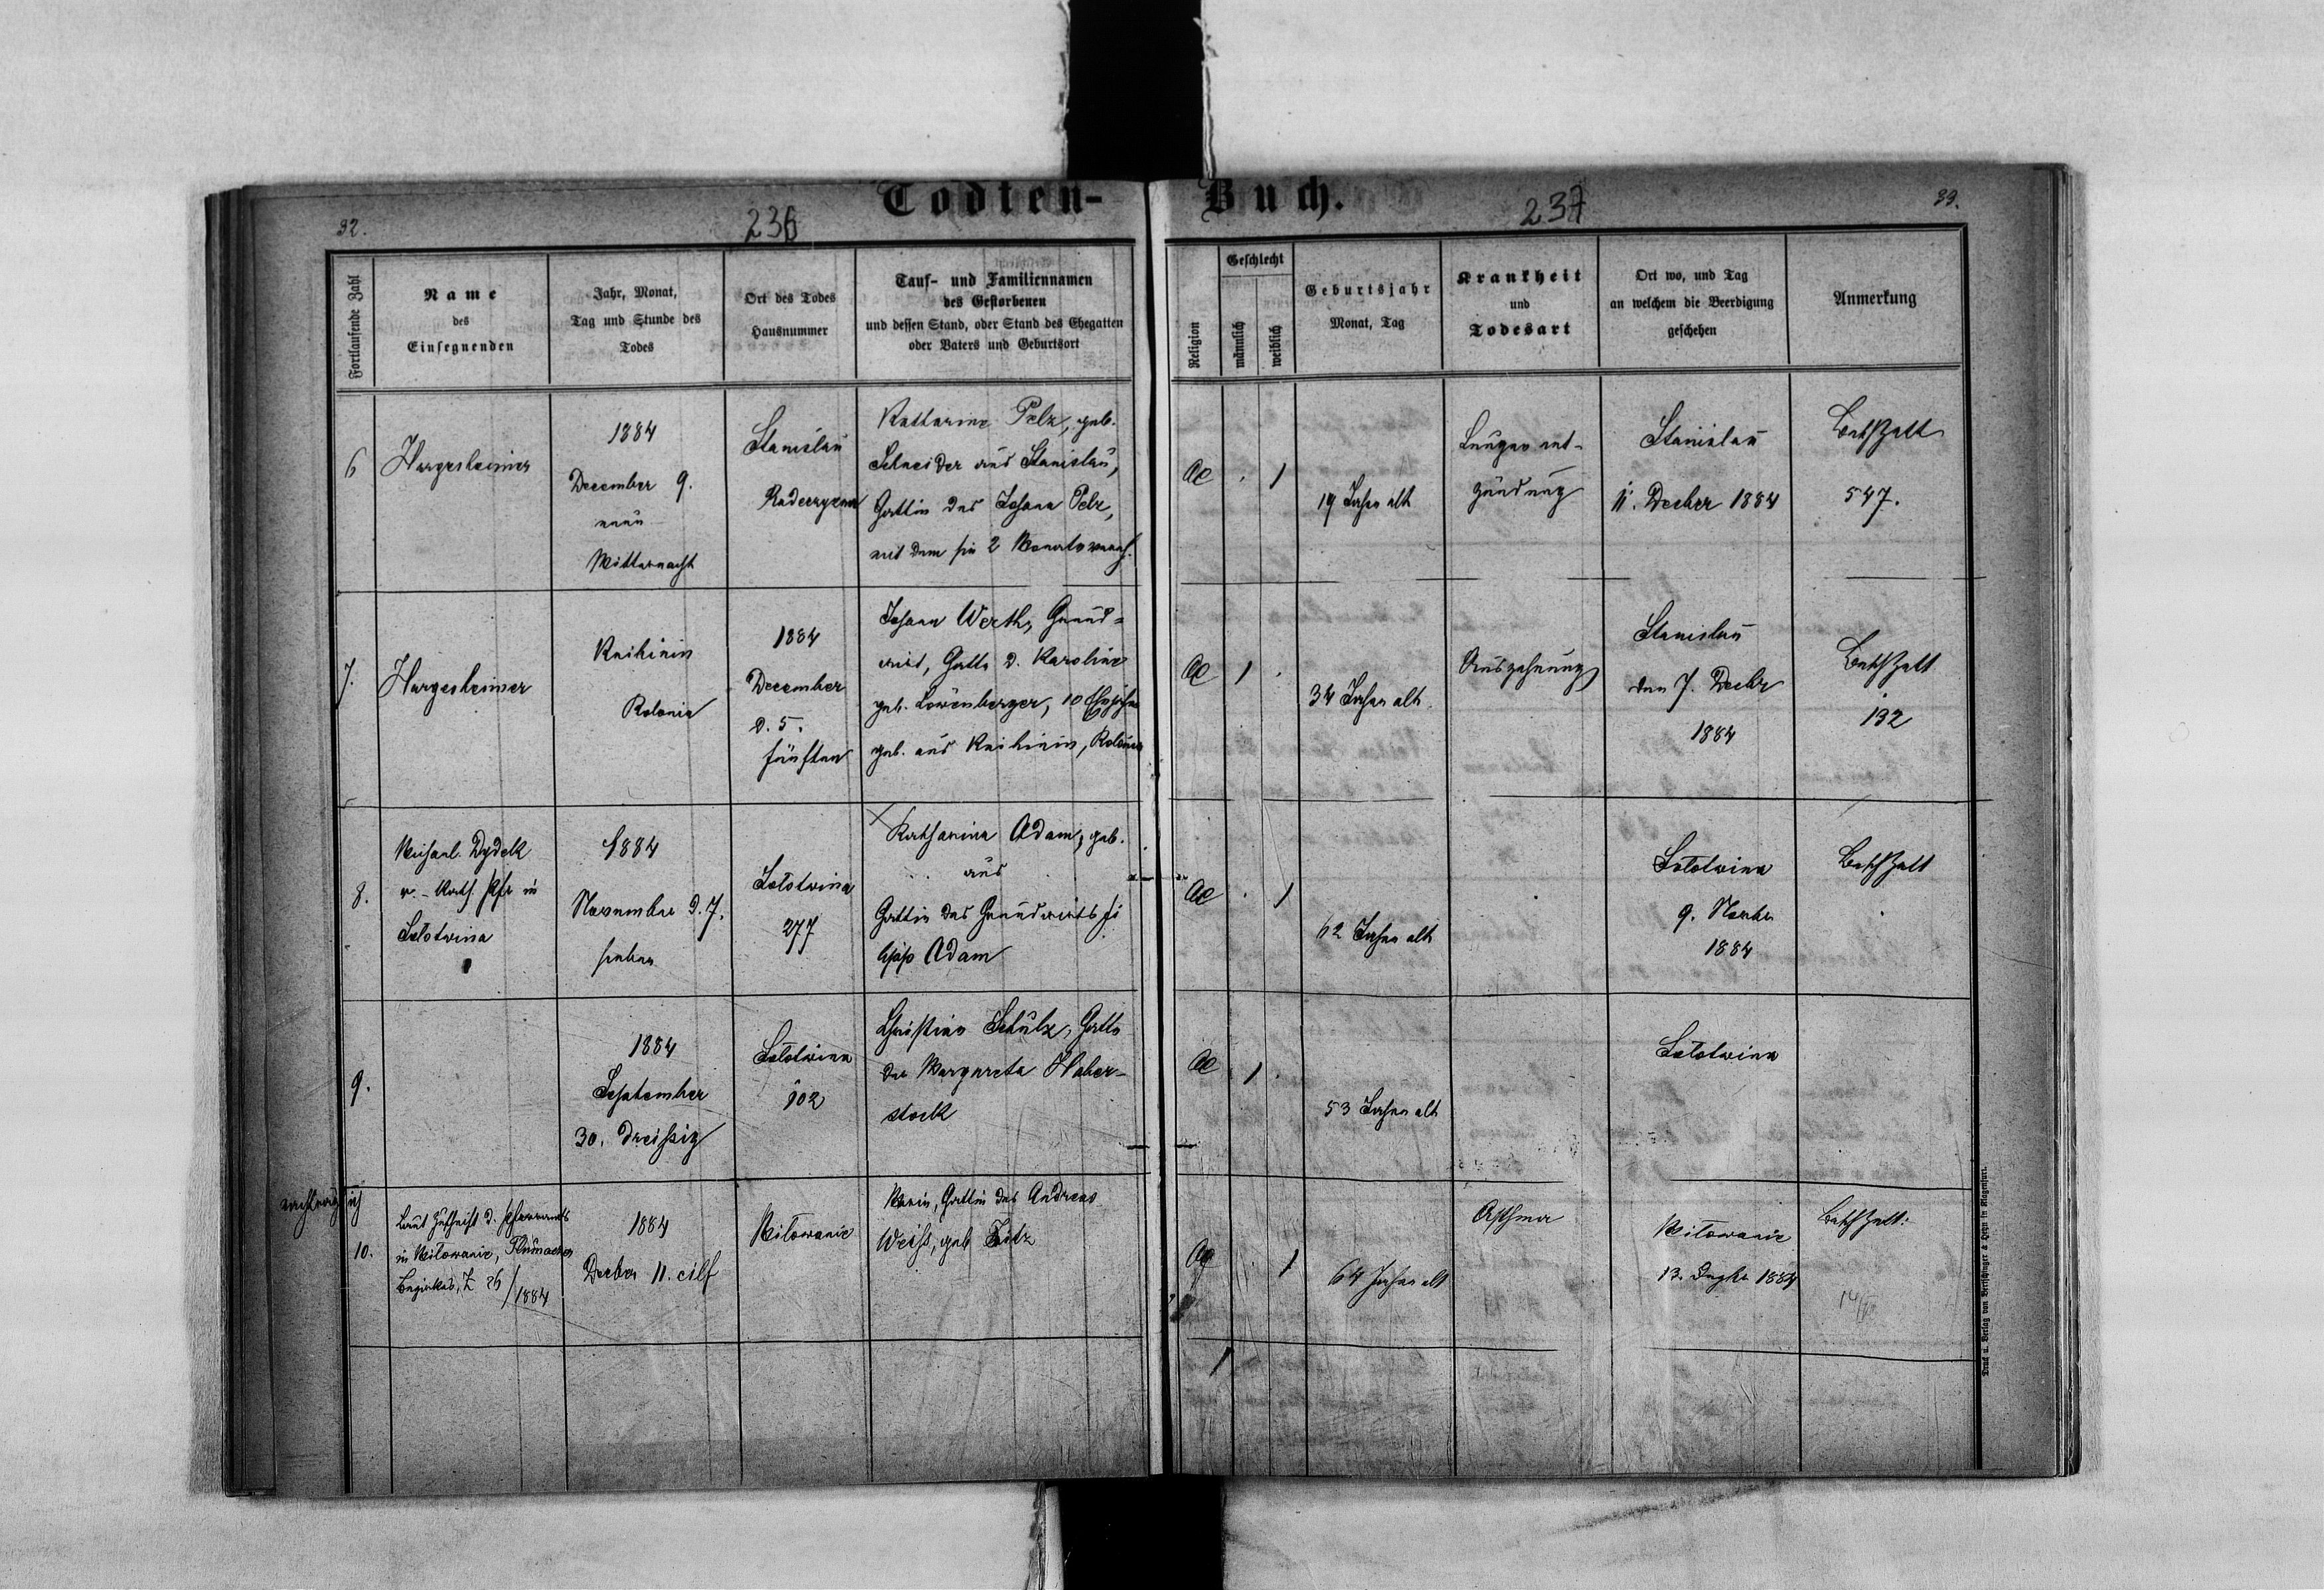 Todten-Buch.
32.
236
237
33.
Fortlaufende Zahl
Name
des
Einsegnenden
Jahr, Monat,
Tag und Stunde des
Todes
Ort des Todes
Hausnummer
Tauf- und Familiennamen
des Gestorbenen
und dessen Stand, oder Stand des Ehegatten
oder Vaters und Geburtsort
Religion
Geschlecht
männlich
weiblich
Geburtsjahr
Monat, Tag
Krankheit
und
Todesart
Ort wo, und Tag
an welchem die Beerdigung
geschehen
Anmerkung
6
Hargesheimer
1884
December 9.
neun
Mitternacht
Stanislau
Katharina Pelz, geb.
Schneider aus Stanislau,
Gattin des Johann Pelz,
mit dem sie 2 Monate
AC
.
1
19 Jahre alt
Lungenent-
zündung
Stanislau
11. Decber 1884
547.
7.
Hargesheimer
Knihinin
Kolonie
1884
December
d. 5.
fünften
Johann Werth, Grund-
wirt, Gatte d. Karoline
geb. Löwenberger, 10
geb. aus Knihinin, Kolonie
AC
1
.
34 Jahre alt
Auszehrung
Stanislau
den 7. Decbr
1884
132
8.
Michael Dydek
r.-kath. Pfr in
Solotwina
1884
November d. 7.
sieben
Solotwina
277
Katharina Adam, geb.
aus
Gattin des Grundwirts
Adam
AC
.
1
62 Jahre alt
Solotwina
9. Novbr
1884
9.
1884
September
30. dreissig
Solotwina
102
Christian Schulz, Gatte
der Margareta Haber-
stock
AC
1
.
53 Jahre alt
Solotwina
nachträglich
10.
Laut Zuschrift d. Pfarramts
in Milowanie, Tlumaczer
Bezirkes, Z 26/1884
1884
Decber 11. eilf
Milowanie
Maria, Gattin des Andreas
Weiss, geb Zitz
.
1
64 Jahre alt
Asthma
Milowanie
13. 1884
Druck u. Verlag von Bertschinger & Heyn in Klagenfurt.